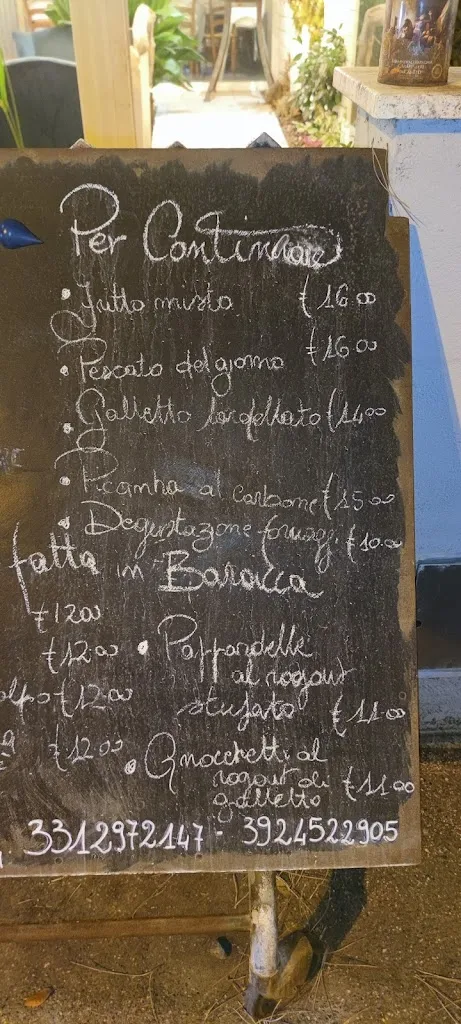 Per Continuare
• Fritto misto €16.00
• Pescato del giorno €16.00
• Galletto €14.00
• Picanha al carbone €15.00
• Degustazione formaggi €10.00
fatta in Baracca
€12.00
€12.00
• Pappardelle
al ragout
olpo €12.00
stufato €11.00
€12.00
• Gnocchetti al
ragout di €11.00
galletto
3312972147 - 3924522905